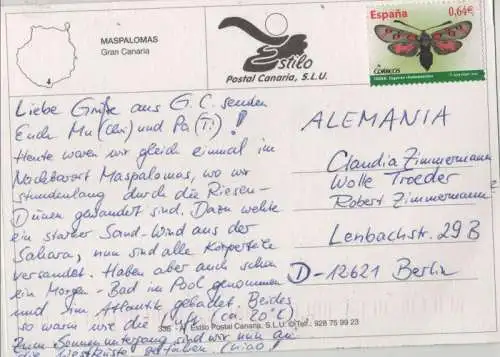 MASPALOMAS
Gran Canaria
Estilo
Postal Canaria, S.L.U.
España
0,64€
CORREOS
Liebe Grüße aus G.C. senden
Euch Mu (Chri) und Pa (Ti) !
Heute waren wir gleich einmal im
Nachbarort Maspalomas, wo wir
stundenlang durch die Riesen-
Dünen gewandert sind. Dazu wehte
ein starker Sand-Wind aus der
Sahara, nun sind alle Körperteile
versandet. Haben aber auch schon
ein Morgen-Bad im Pool genommen
und im Atlantik gebadet. Beides
so warm wie die Luft (ca. 20°C)
Zum Sonnenuntergang sind wir nun an
die Westküste gefahren. Ciao!
ALEMANIA
Claudia Zimmermann
Wolle Troeder
Robert Zimmermann
Lenbachstr. 29 B
D-12621 Berlin
Estilo Postal Canaria, S.L.U. Tel.: 928 75 99 23